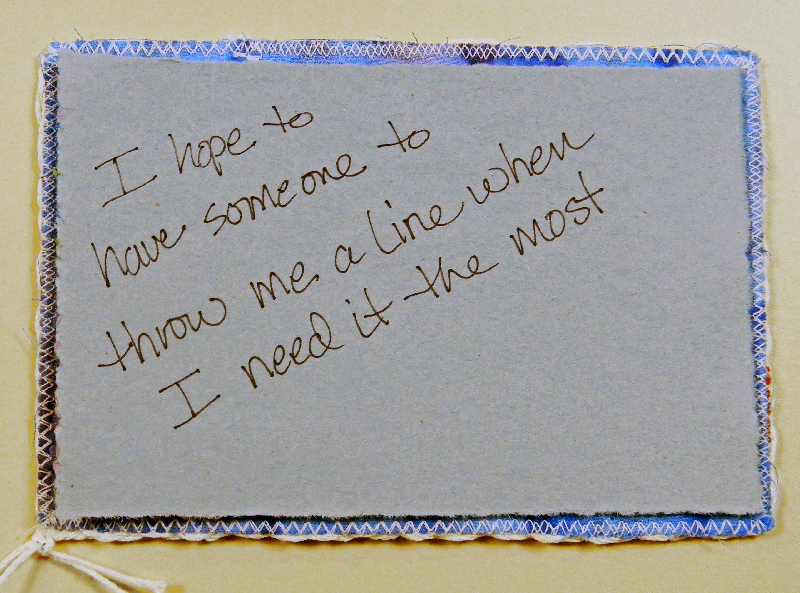 I hope to
have someone to
throw me a line when
I need it the most